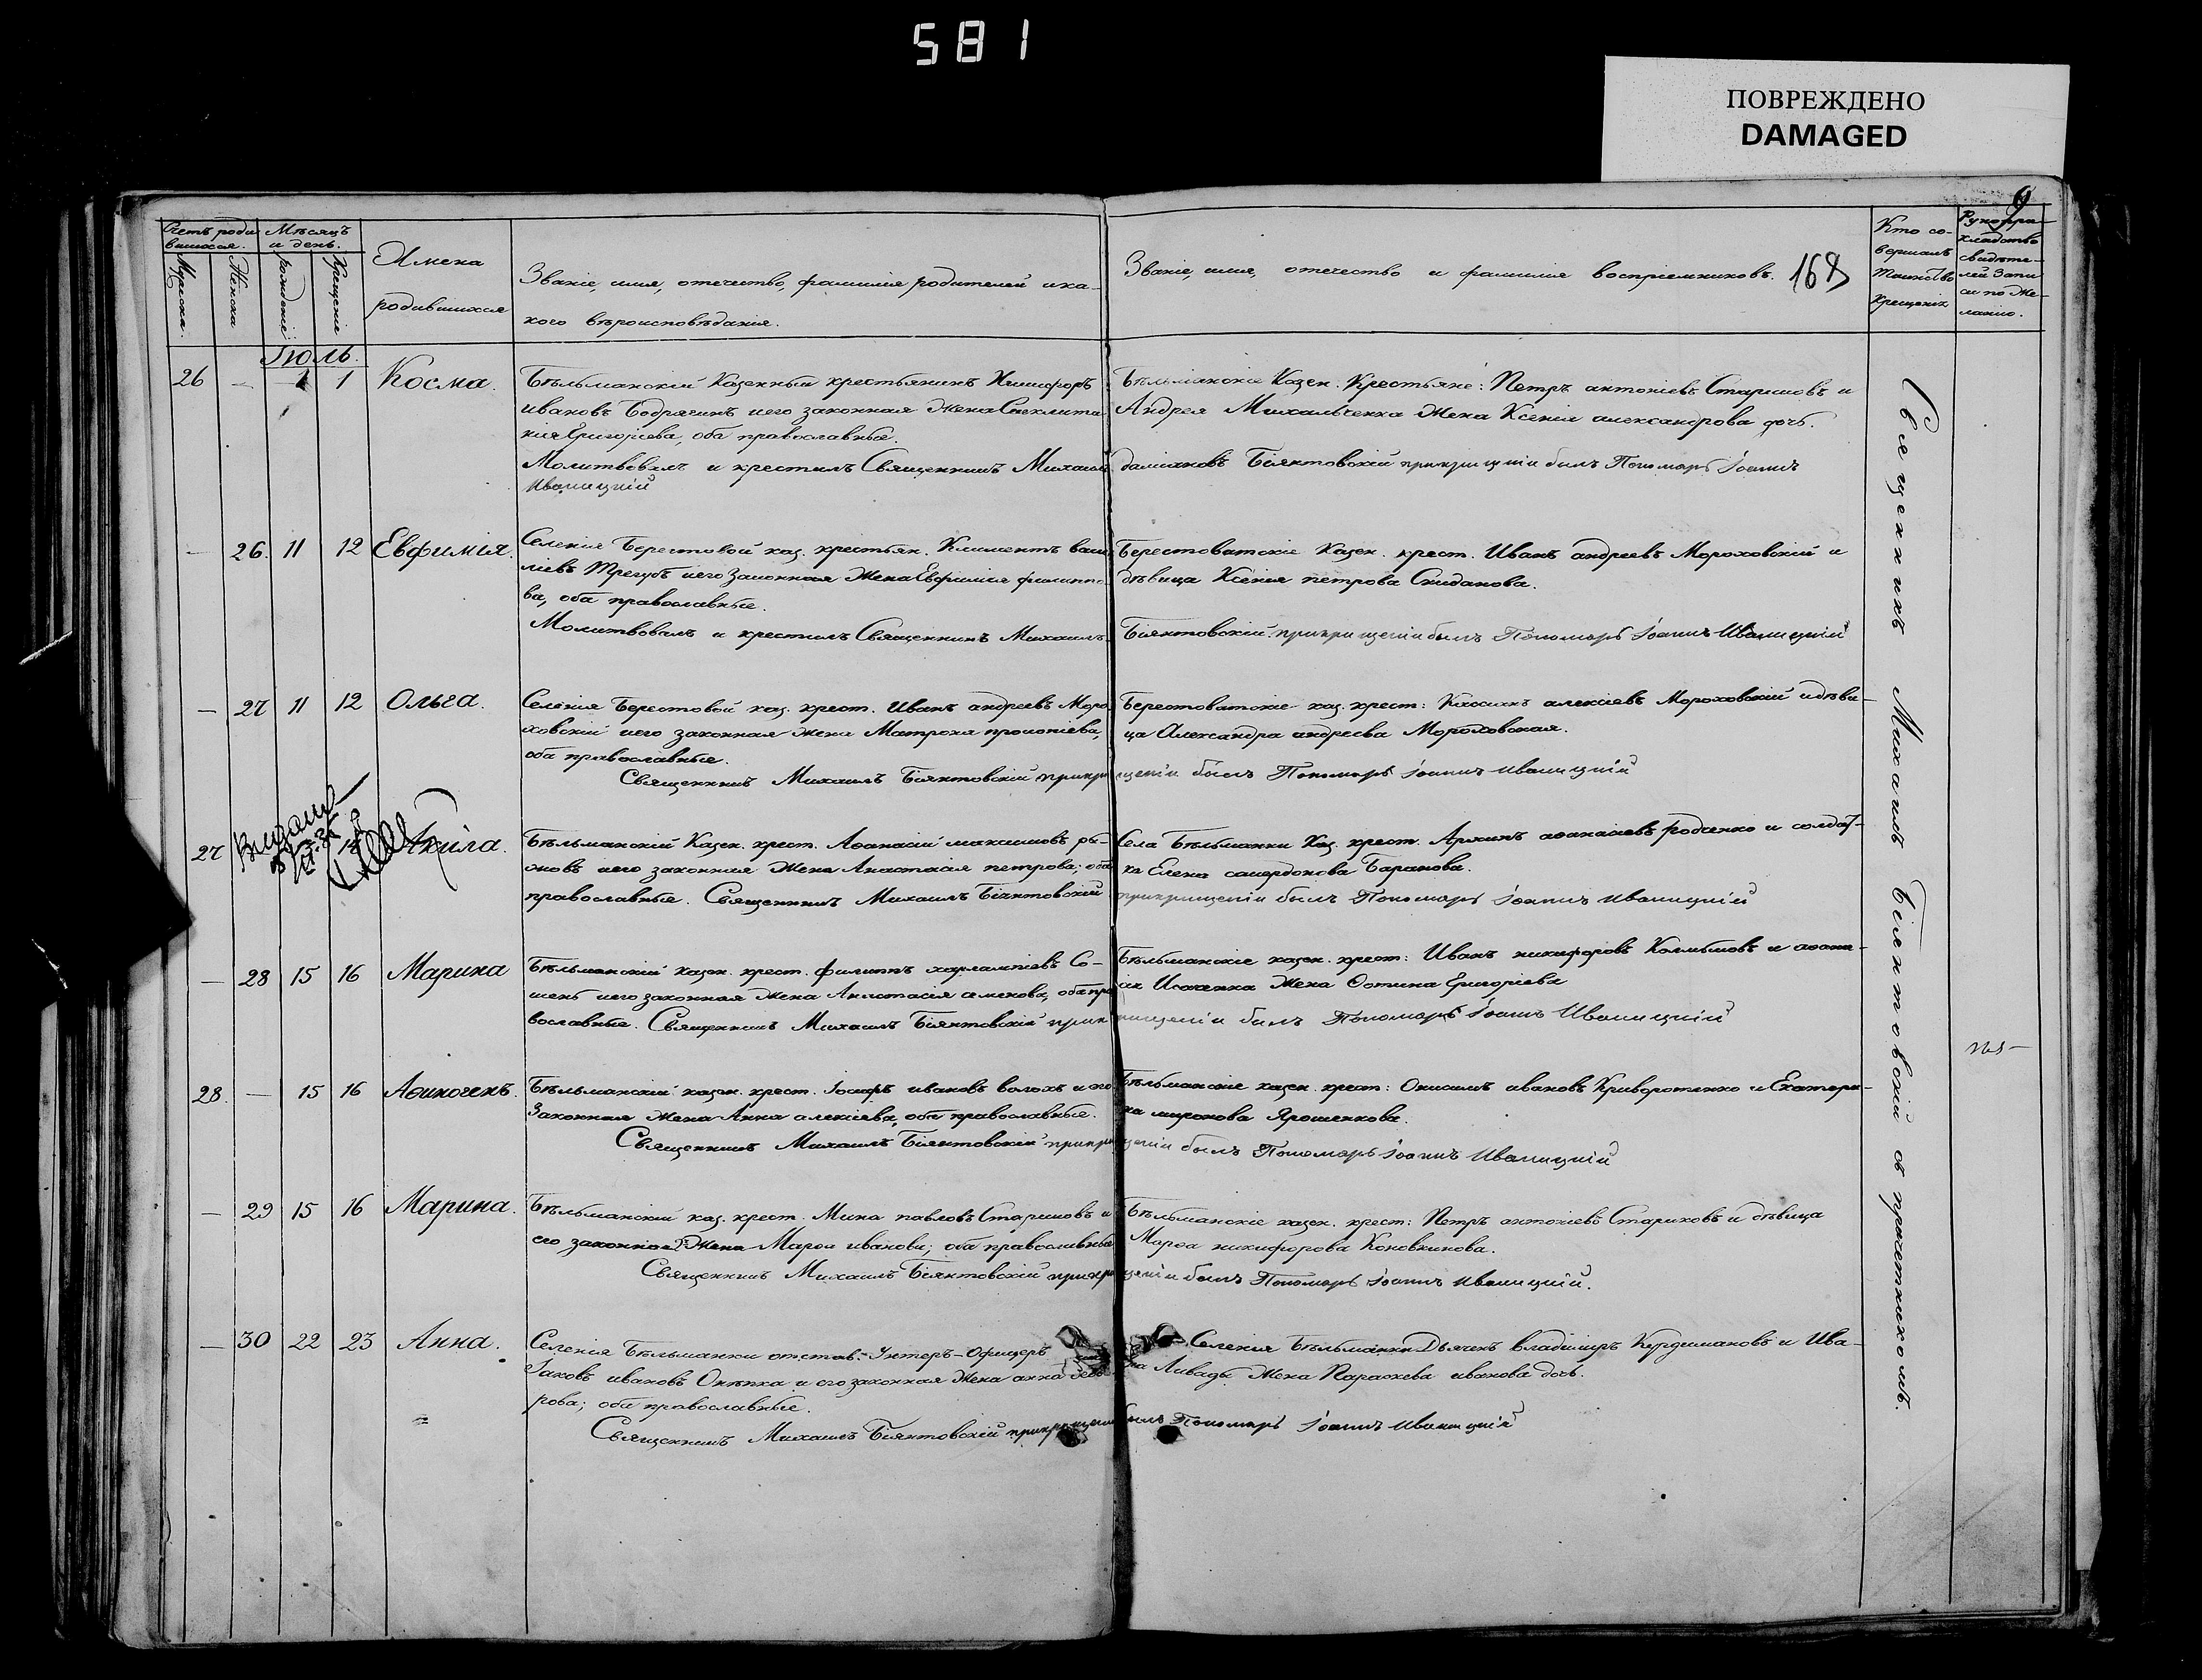 581
ПОВРЕЖДЕНО
DAMAGED
9
Счетъ роди-
вшихся.
Мужеска.
Женска
Мѣсяцъ
и день.
рожденія
крещенія
Имена
родившихся
Званіе, имя, отечество, фамилія родителей и ка-
кого вѣроисповѣданія.
Званіе, имя, отечество и фамилія воспріемниковъ.
168
Кто со-
вершалъ
таинство
крещенія
Рукопри-
кладство
свидѣте-
лей запи
си по же-
ланію.
Іюль.
26 — 1 1 Косма.
Бѣльманскій Казенный крестьянинъ Никифоръ
ивановъ Бодрягинъ и его законная жена
Григоріева, оба православные.
Молитвовалъ и крестилъ Священникъ Михаилъ
Иваницкій
Бѣльманскіе Казен. Крестьяне: Петръ антоніевъ Стариковъ и
Андрея Михальченка жена Ксенія александрова дочь.
даміановъ Біянтовскій при крищеніи былъ Пономарь Іоаннъ
— 26. 11 12 Евфимія.
Селенія Берестовой каз. крестьян. Климентъ васи
ліевъ Трегубъ и его Законная Жена Евфимія филиппо-
ва, оба православные.
Молитвовалъ и крестилъ Священникъ Михаилъ
Берестоватскіе Казен. крест. Иванъ андреевъ Мороховскій и
дѣвица Ксенія петрова Скиданова.
Біянтовскій при крищеніи былъ Пономарь Іоаннъ Иваницкій
— 27 11 12 Ольга.
Селенія Берестовой каз. крест. Иванъ андреевъ Моро
ховскій и его законная жена Матрона прокопіева,
оба православные.
Священникъ Михаилъ Біянтовскій при кри
Берестоватскіе каз. крест: алексіевъ Мороховскій и дѣви-
ца Александра андреева Мороховская.
щеніи былъ Пономарь Іоаннъ Иваницкій
27 Акила.
Бѣльманскій Казен. крест. Аѳанасій максимовъ ры-
жовъ и его законная жена Анастасія петрова; оба
православные. Священникъ Михаилъ Біянтовскій
Села Бѣльманки Каз. крест. аѳанасіевъ родченко и солдат-
ка Елена Баранова.
при крищеніи былъ Пономарь Іоаннъ Иваницкій
— 28 15 16 Марина
Бѣльманскій казен. крест. филиппъ харлампіевъ Со-
и его законная жена Анастасія семенова, оба пра
вославные. Священникъ Михаилъ Біянтовскій при к
Бѣльманскіе казен. крест: Иванъ никифоровъ и аѳана-
сія Исаенка жена Ѳотина Григоріева
рищеніи былъ Пономарь Іоаннъ Иваницкій
28. — 15 16 Аѳиногенъ.
Бѣльманскій казен. крест. Іосифъ ивановъ волохъ и его
Законная жена Анна алексіева, оба православные.
Священникъ Михаилъ Біянтовскій при кри
Бѣльманскіе казен. крест: Онисимъ ивановъ Криворотенко и Екатери-
на миронова Ярошенкова.
щеніи былъ Пономарь Іоаннъ Иваницкій
— 29 15 16 Марина.
Бѣльманскій каз. крест. Мина павловъ Стариковъ и
его законная жена Марѳа иванова; оба православные
Священникъ Михаилъ Біянтовскій при кри
Бѣльманскіе казен. крест: Петръ антоніевъ Стариковъ и дѣвица
Марѳа никифорова Коновкинова.
щеніи былъ Пономарь Іоаннъ Иваницкій.
— 30 22 23 Анна.
Селенія Бѣльманки отстав. Унтеръ-Офицеръ
Іаковъ ивановъ и его законная жена анна
рова; оба православные.
Священникъ Михаилъ Біянтовскій при крищеніи
Селенія Бѣльманки Дьячекъ владиміръ Курдимановъ и Ива-
на Ливады Жена Параскева иванова дочь.
былъ Пономарь Іоаннъ Иваницкій
Священникъ Михаилъ Біянтовскій съ причетникомъ.